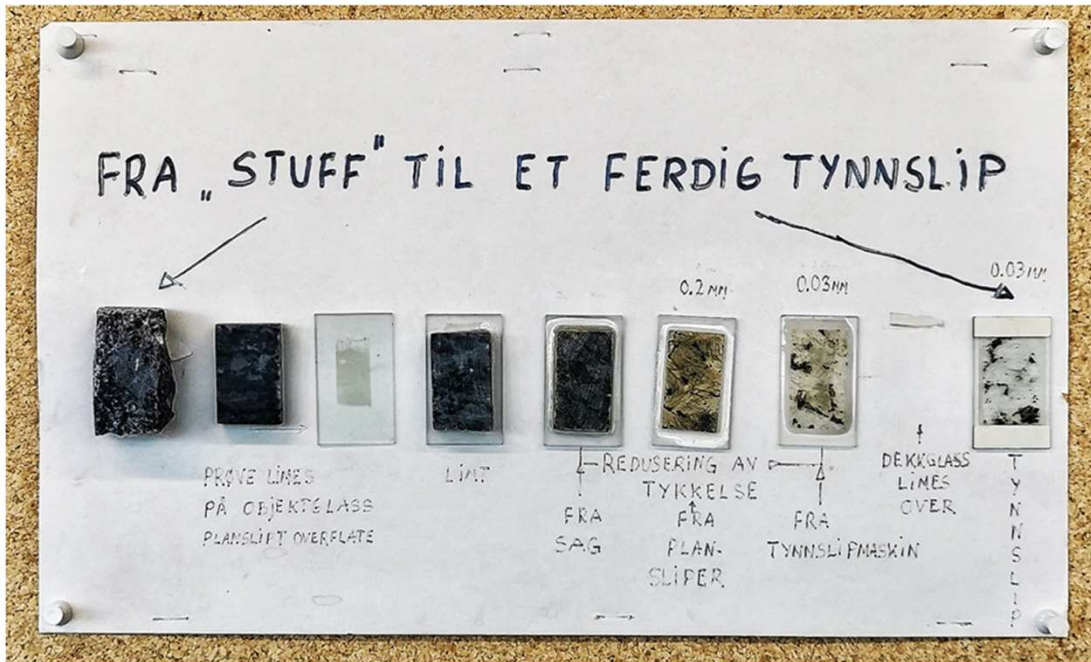 FRA „STUFF" TIL ET FERDIG TYNNSLIP
0.2 MM
0.03 MM
0.03 MM
PRØVE LIMES
PÅ OBJEKTGLASS
PLANSLIPT OVERFLATE
LIMT
REDUSERING AV
TYKKELSE
FRA
SAG
FRA
PLAN-
SLIPER
FRA
TYNNSLIPMASKIN
DEKKGLASS
LIMES
OVER
TYNNSLIP